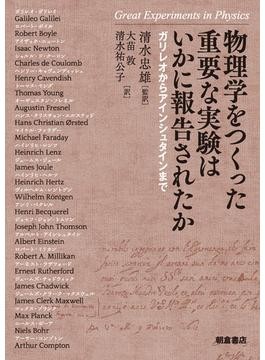 Great Experiments in Physics
物理学をつくった
重要な実験は
いかに報告されたか
ガリレオからアインシュタインまで
清水忠雄[監訳]
大苗 敦
清水祐公子[訳]
ガリレオ・ガリレイ
Galileo Galilei
ロバート・ボイル
Robert Boyle
アイザック・ニュートン
Isaac Newton
シャルル・ド・クーロン
Charles de Coulomb
ヘンリー・キャヴェンディッシュ
Henry Cavendish
トーマス・ヤング
Thomas Young
オーギュスタン・フレネル
Augustin Fresnel
ハンス・クリスチャン・エルステッド
Hans Christian Ørsted
マイケル・ファラデー
Michael Faraday
ハインリヒ・レンツ
Heinrich Lenz
ジェームス・ジュール
James Joule
ハインリヒ・ヘルツ
Heinrich Hertz
ヴィルヘルム・レントゲン
Wilhelm Röntgen
アンリ・ベクレル
Henri Becquerel
ジョセフ・ジョン・トムソン
Joseph John Thomson
アルベルト・アインシュタイン
Albert Einstein
ロバート・ミリカン
Robert A. Millikan
アーネスト・ラザフォード
Ernest Rutherford
ジェームズ・チャドウィック
James Chadwick
ジェームズ・クラーク・マクスウェル
James Clerk Maxwell
マックス・プランク
Max Planck
ニールス・ボーア
Niels Bohr
アーサー・コンプトン
Arthur Compton
朝倉書店